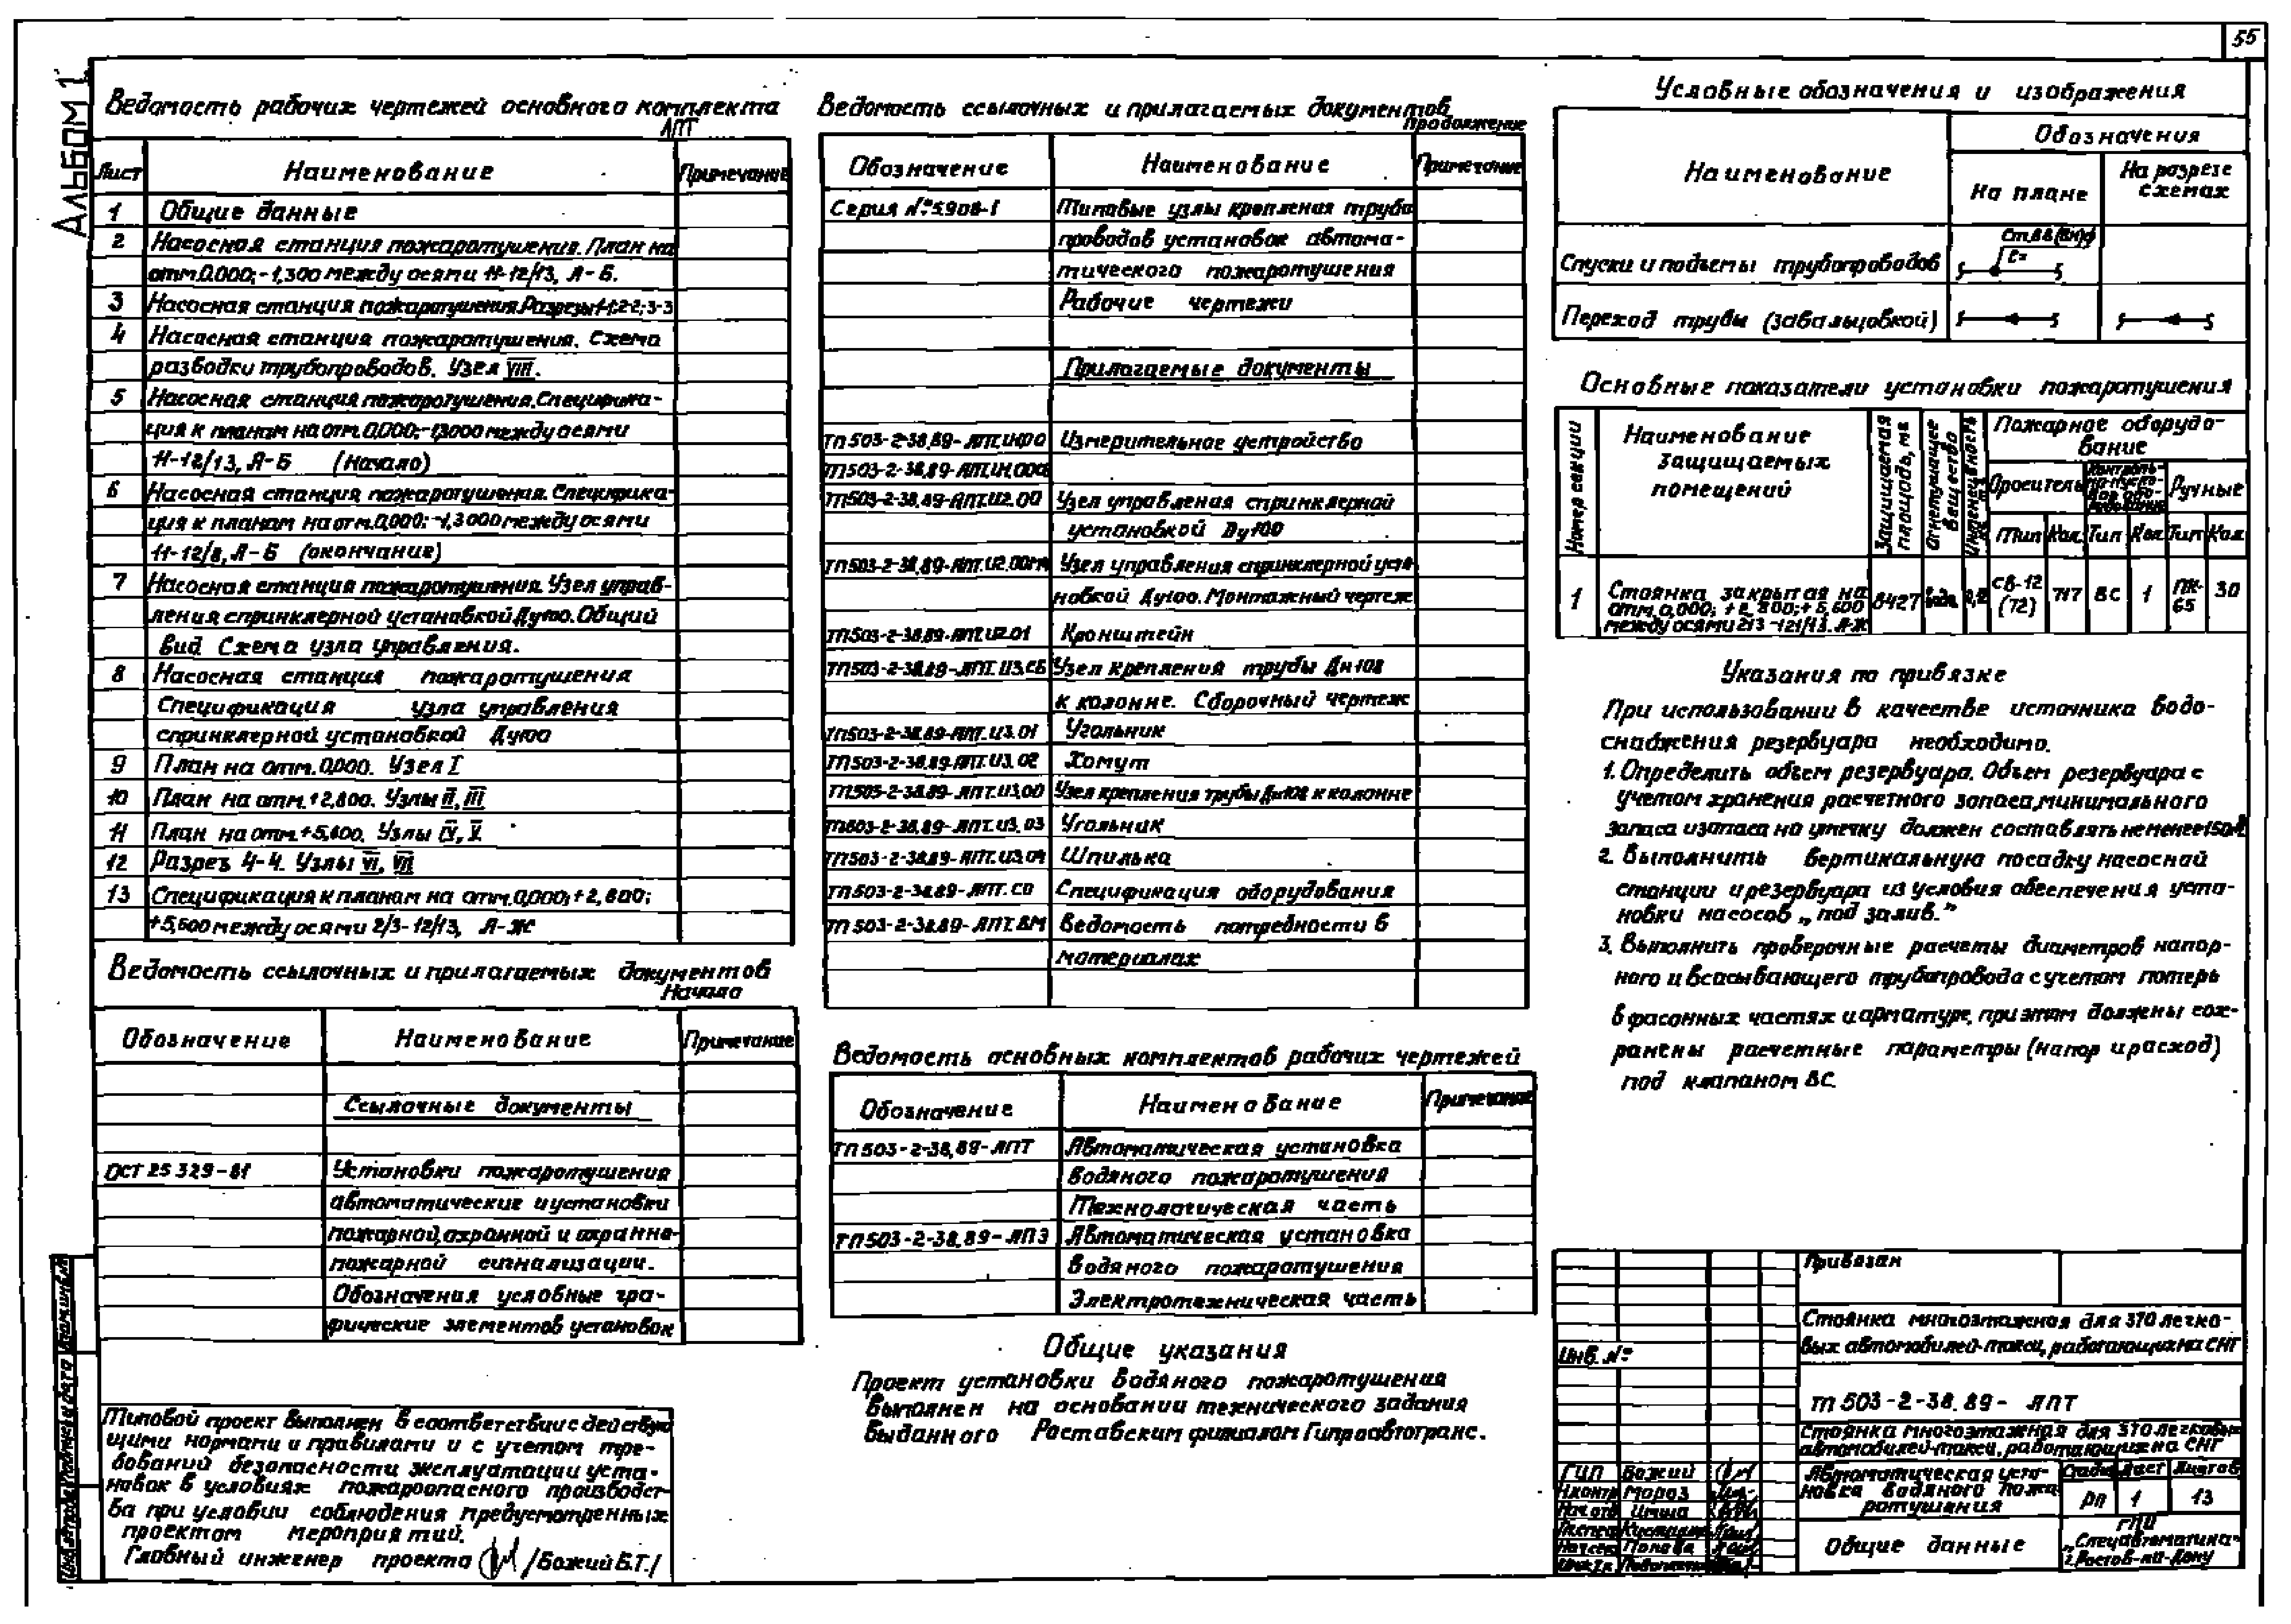 55
Альбом 1
Ведомость рабочих чертежей основного комплекта
АПТ
Лист Наименование Примечание
1 Общие данные
2 Насосная станция пожаротушения. План на
отм. 0.000; -1,300 между осями 11-12/13, А-Б.
3 Насосная станция пожаротушения. Разрезы 1-1; 2-2; 3-3
4 Насосная станция пожаротушения. Схема
разводки трубопроводов. Узел VIII.
5 Насосная станция пожаротушения. Специфика-
ция к планам на отм. 0,000; -1,3000 между осями
11-12/13, А-Б (Начало)
6 Насосная станция пожаротушения. Специфика-
ция к планам на отм. 0,000; -1,3000 между осями
11-12/8, А-Б (окончание)
7 Насосная станция пожаротушения. Узел управ-
ления спринклерной установкой Ду100. Общий
вид Схема узла управления.
8 Насосная станция пожаротушения
Спецификация узла управления
спринклерной установкой Ду100
9 План на отм. 0,000. Узел I
10 План на отм. +2,800. Узлы II, III
11 План на отм. +5,600. Узлы IV, V.
12 Разрез 4-4. Узлы VI, VII
13 Спецификация к планам на отм. 0,000; +2,800;
+5,600 между осями 2/3-12/13, А-Ж
Ведомость ссылочных и прилагаемых документов
Начало
Обозначение Наименование Примечание
Ссылочные документы
ОСТ 25 329-81 Установки пожаротушения
автоматические и установки
пожарной, охранной и охранно-
пожарной сигнализации.
Обозначения условные гра-
фические элементов установок
Типовой проект выполнен в соответствии с действую
щими нормами и правилами и с учетом тре-
бований безопасности эксплуатации уста-
новок в условиях пожароопасного производст-
ва при условии соблюдения предусмотренных
проектом мероприятий.
Главный инженер проекта /Божий Б.Т./
Ведомость ссылочных и прилагаемых документов
Продолжение
Обозначение Наименование Примечание
Серия № 5.908-1 Типовые узлы крепления трубо
проводов установок автома-
тического пожаротушения
Рабочие чертежи
Прилагаемые документы
ТП 503-2-38.89-АПТ.И1.00 Измерительное устройство
ТП503-2-38.89-АПТ.И1.000
ТП503-2-38.89-АПТ.И2.00 Узел управления спринклерной
установкой Ду100
ТП503-2-38.89-АПТ.И2.00МЧ Узел управления спринклерной уста
новкой Ду100. Монтажный чертеж
ТП503-2-38.89-АПТ.И2.01 Кронштейн
ТП503-2-38.89-АПТ.И3.СБ Узел крепления трубы Дн108
к колонне. Сборочный чертеж
ТП503-2-38.89-АПТ.И3.01 Угольник
ТП503-2-38.89-АПТ.И3.02 Хомут
ТП503-2-38.89-АПТ.И3.00 Узел крепления трубы Дн108 к колонне
ТП503-2-38.89-АПТ.И3.03 Угольник
ТП503-2-38.89-АПТ.И3.04 Шпилька
ТП503-2-38.89-АПТ.СО Спецификация оборудования
ТП 503-2-38.89-АПТ.ВМ Ведомость потребности в
материалах
Ведомость основных комплектов рабочих чертежей
Обозначение Наименование Примечание
ТП 503-2-38.89-АПТ Автоматическая установка
водяного пожаротушения
Технологическая часть
ТП 503-2-38.89-АПЭ Автоматическая установка
водяного пожаротушения
Электротехническая часть
Общие указания
Проект установки водяного пожаротушения
выполнен на основании технического задания
выданного Роставским филиалом Гипроавтотранс.
Условные обозначения и изображения
Наименование Обозначения
На плане На разрезе схемах
Спуски и подъемы трубопроводов
Переход трубы (завальцовкой)
Основные показатели установки пожаротушения
Номер секции Наименование защищаемых помещений Защищаемая площадь, м2 Огнетушащее вещество Интенсивность Пожарное оборудо-
вание
Ороситель Ручные
Тип Кол. Тип Кол. Тип Кол.
1 Стоянка закрытая на
отм. 0,000; +2,800; +5,600
между осями 2/3-12/13. А-Ж 8427 Вода СВ-12 (72) 717 ВС 1 ПК-65 30
Указания по привязке
При использовании в качестве источника водо-
снабжения резервуара необходимо.
1. Определить объем резервуара. Объем резервуара с
учетом хранения расчетного запаса, минимального
запаса и запаса на утечку должен составлять не менее
2. Выполнить вертикальную посадку насосной
станции и резервуара из условия обеспечения уста-
новки насосов „под залив.”
3. Выполнить проверочные расчеты диаметров напор-
ного и всасывающего трубопровода с учетом потерь
в фасонных частях и арматуре, при этом должны сох-
ранены расчетные параметры (напор и расход)
под клапаном ВС.
Привязан
Инв. №
Стоянка многоэтажная для 370 легко-
вых автомобилей-такси, работающих на СНГ
ТП 503-2-38.89- АПТ
Стоянка многоэтажная для 370 легковых
автомобилей-такси, работающих на СНГ
ГИП Божий
Н.контр Мороз
Автоматическая уста-
новка водяного пожа
ротушения
Стадия Лист Листов
РП 1 13
Общие данные
ГПИ
„Спецавтоматика”
г. Ростов-на-Дону